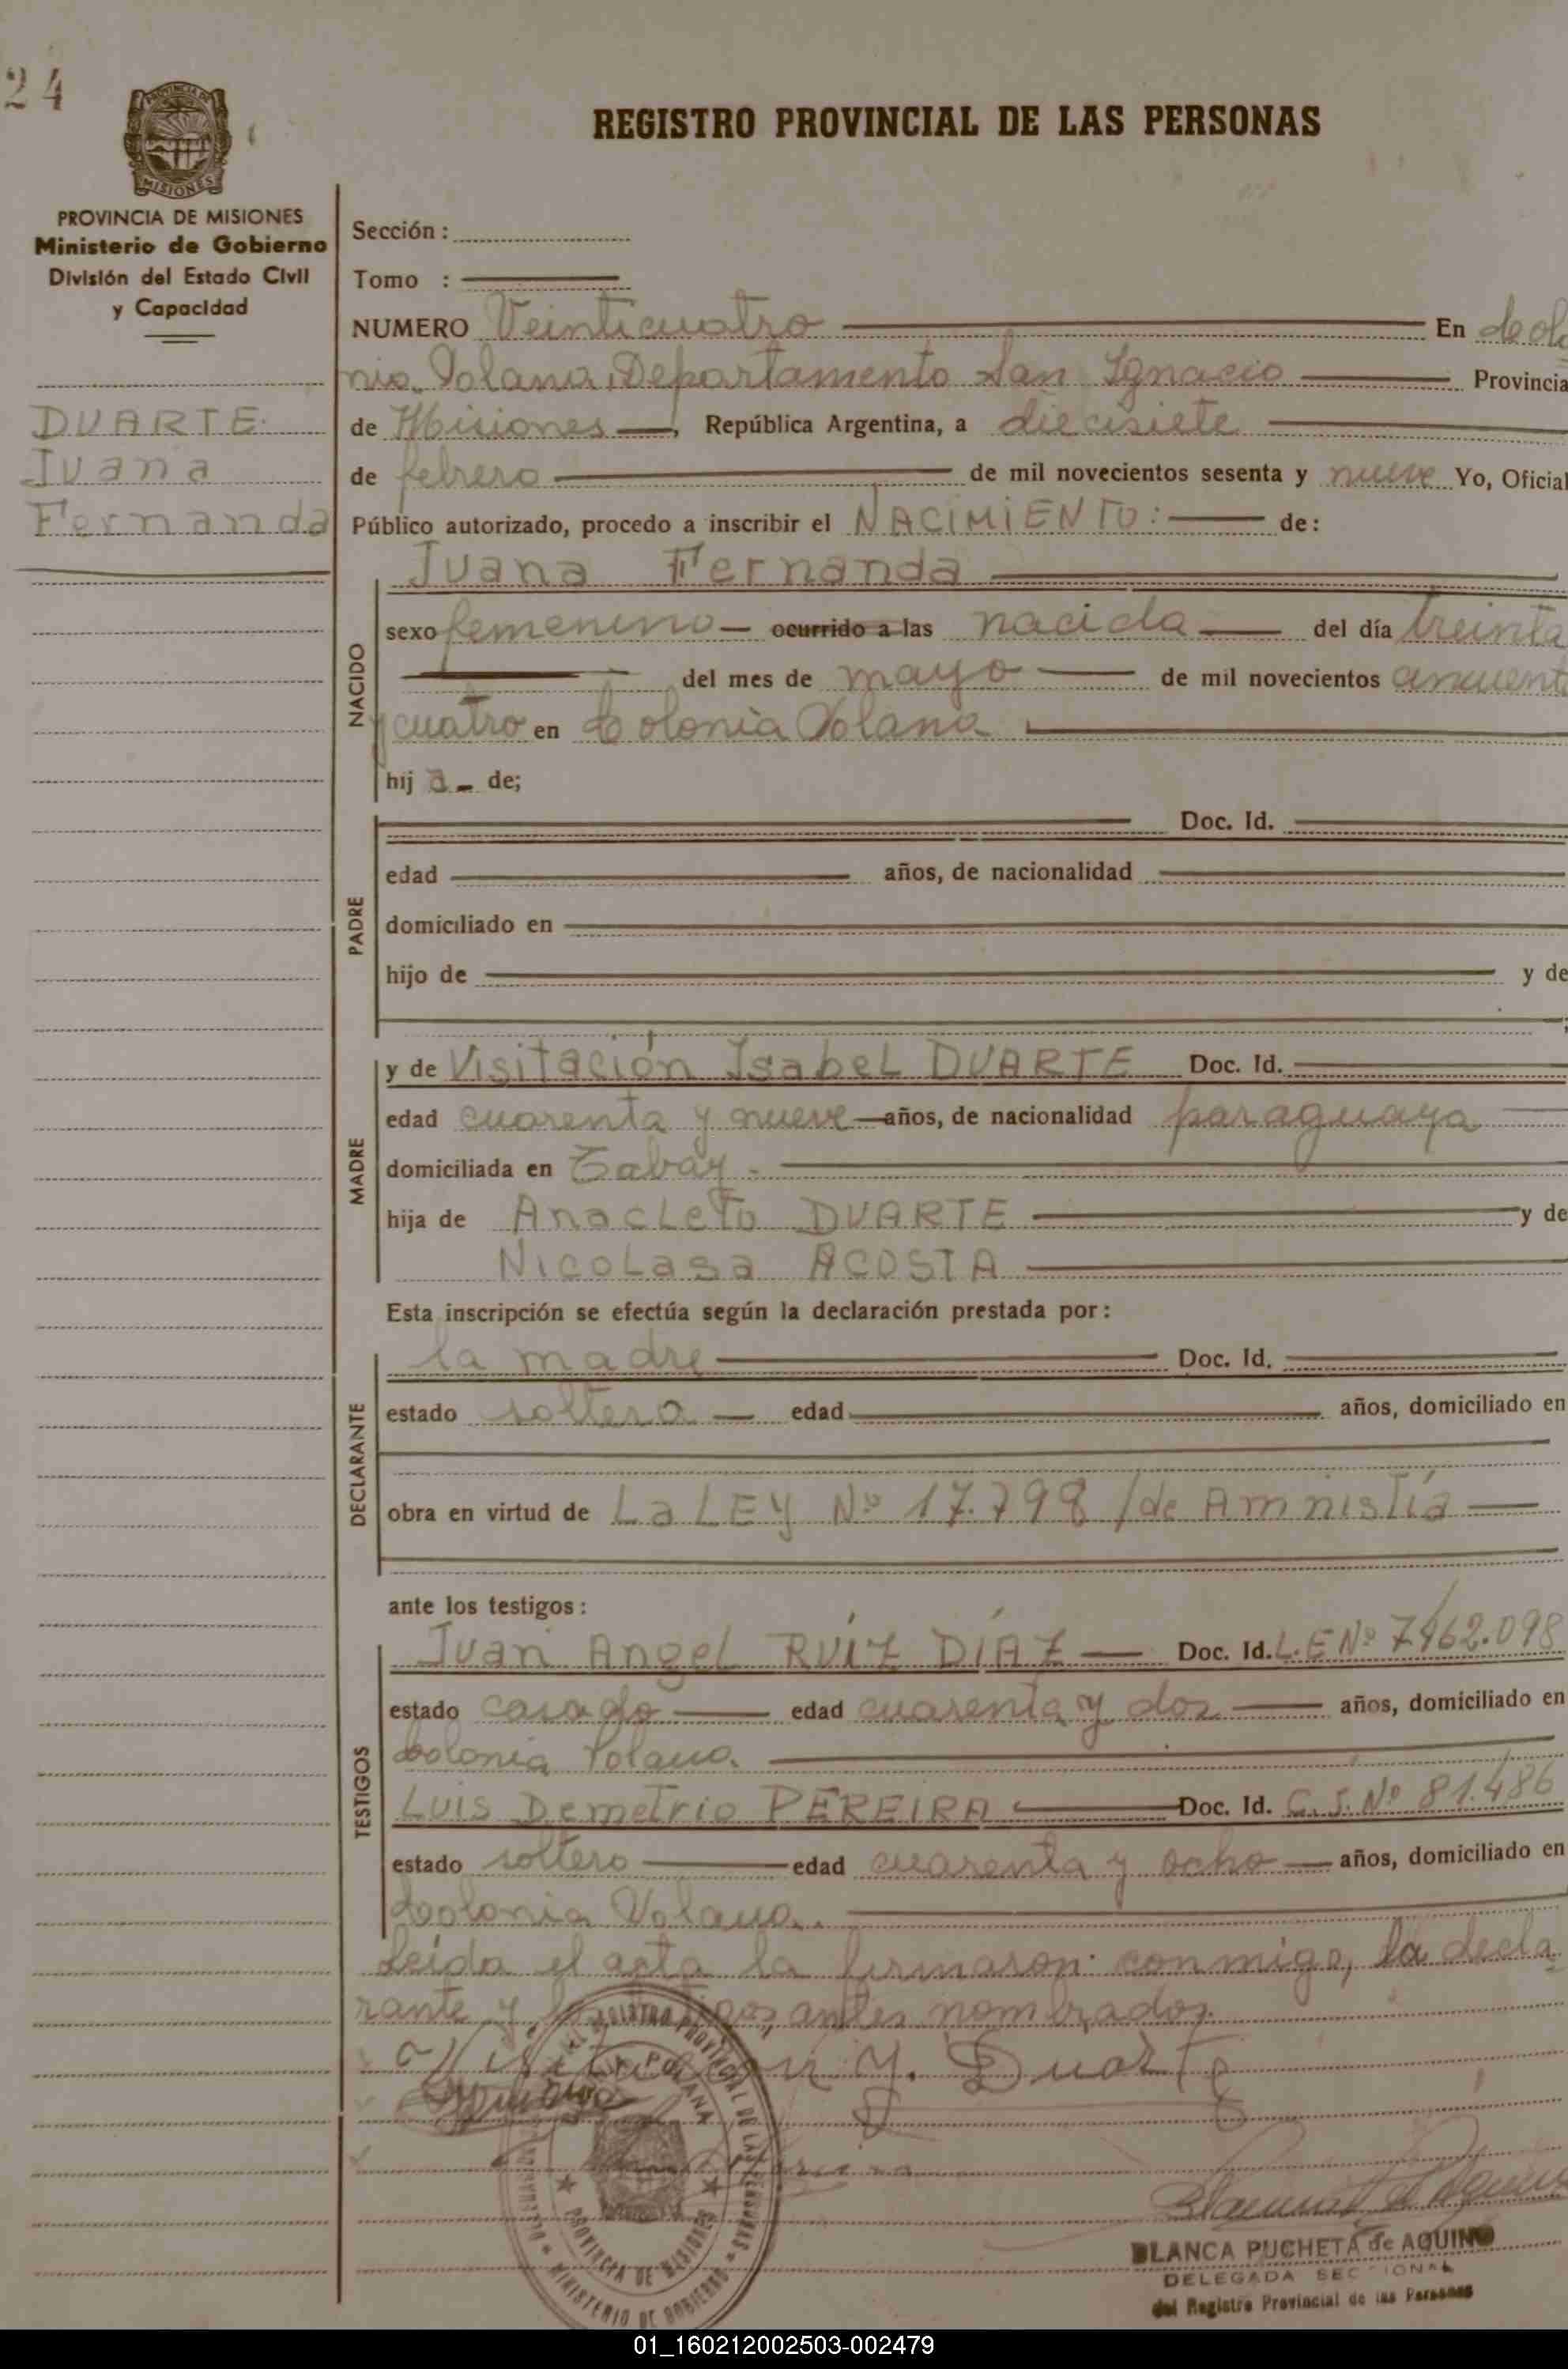 24
REGISTRO PROVINCIAL DE LAS PERSONAS
PROVINCIA DE MISIONES
Ministerio de Gobierno
División del Estado Civil
y Capacidad
DUARTE
Juana
Fernanda
Sección :
Tomo :
NUMERO Veinticuatro En Colo
nia Polana, Departamento San Ignacio Provincia
de Misiones, República Argentina, a diecisiete
de febrero de mil novecientos sesenta y nueve Yo, Oficial
Público autorizado, procedo a inscribir el NACIMIENTO: de:
NACIDO
Juana Fernanda
sexo femenino ocurrido a las nacida del día treinta
del mes de mayo de mil novecientos cincuenta
y cuatro en Colonia Polana
hija de;
PADRE
Doc. Id.
edad años, de nacionalidad
domiciliado en
hijo de y de
;
MADRE
y de Visitación Isabel DUARTE Doc. Id.
edad cuarenta y nueve años, de nacionalidad paraguaya
domiciliada en Tabay.
hija de Anacleto DUARTE y de
Nicolasa ACOSTA
Esta inscripción se efectúa según la declaración prestada por:
DECLARANTE
la madre Doc. Id.
estado soltera edad años, domiciliado en
obra en virtud de La LEY Nº 17.798 /de Amnistía
ante los testigos:
TESTIGOS
Juan Angel RUÍZ DÍAZ Doc. Id. L.E Nº 7.462.098
estado casado edad cuarenta y dos años, domiciliado en
Colonia Polana.
Luis Demetrio PEREIRA Doc. Id. C. J. Nº 81.486
estado soltero edad cuarenta y ocho años, domiciliado en
Colonia Polana.
Leída el acta la firmaron conmigo, la decla
rante y testigos, antes nombrados.
Visitación Y. Duarte
REGISTRO PROVINCIAL DE LAS PERSONAS
POLANA
PROVINCIA DE MISIONES
MINISTERIO DE GOBIERNO
BLANCA PUCHETA de AQUINO
DELEGADA SECCIONAL
del Registro Provincial de las Personas
01_160212002503-002479